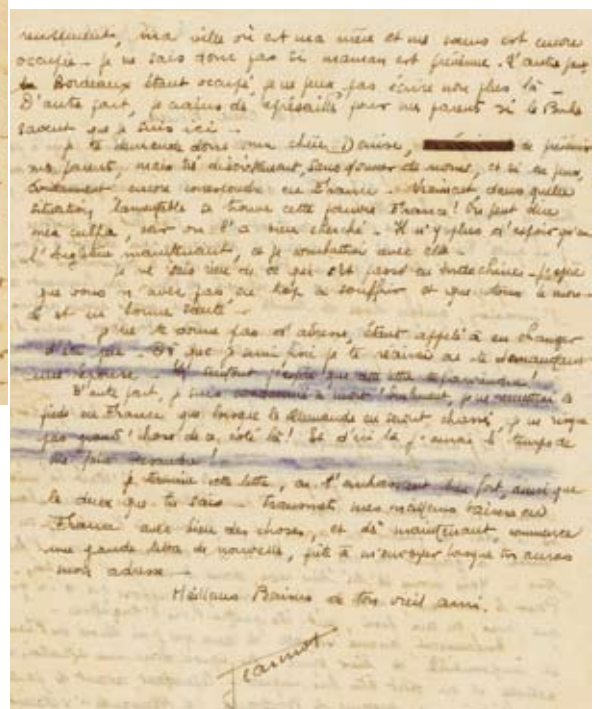 ma ville où est ma mère et mes sœurs est encore
occupée - je ne sais donc pas si maman est prévenue. D'autre part
Bordeaux étant occupé je ne peux pas écrire non plus là -
D'autre part, je crains de représaille pour mes parent si le Boche
savent que je suis ici -
je te demande donc ma chère Denise, de prévenir
mes parent, mais trè discrètement, sans donner de noms, et si tu peux,
évidemment encore correspondre en France - Vraiment dans quelle
situation lamentable se trouve cette pauvre France! On peut dire
mea culpa, car on l'a bien cherché - Il n'y plus d'espoir qu'en
l'Angleterre maintenant, et je combattrai avec elle -
je ne sais rien de ce qui est passé en Indochine - j'espère
que vous n'avez pas eu trop à souffrir et que tous
et en bonne santé -
je ne te donne pas d'adresse, étant appelé à en changer
d'ici peu - Dè que j'aurai fini je te récrirai en te demandant
une réponse - j'espère que cette lettre te parviendra!
D'autre part, je suis condamné à mort! je ne remettrai le
pieds en France que lorsque le allemands en seront chassé, je ne risque
pas grand'chose de ce côté là! Et d'ici là j'aurai le temps de
me faire descendre!
je termine cette lettre, en t'embrassant bien fort, ainsi que
le deux que tu sais - transmets mes meilleurs baisers en
France avec bien des choses, et dè maintenant, commence
une grande lettre de nouvelle, prête à m'envoyer lorsque tu auras
mon adresse -
Meilleurs Baisers de ton vieil ami.
Jeannot